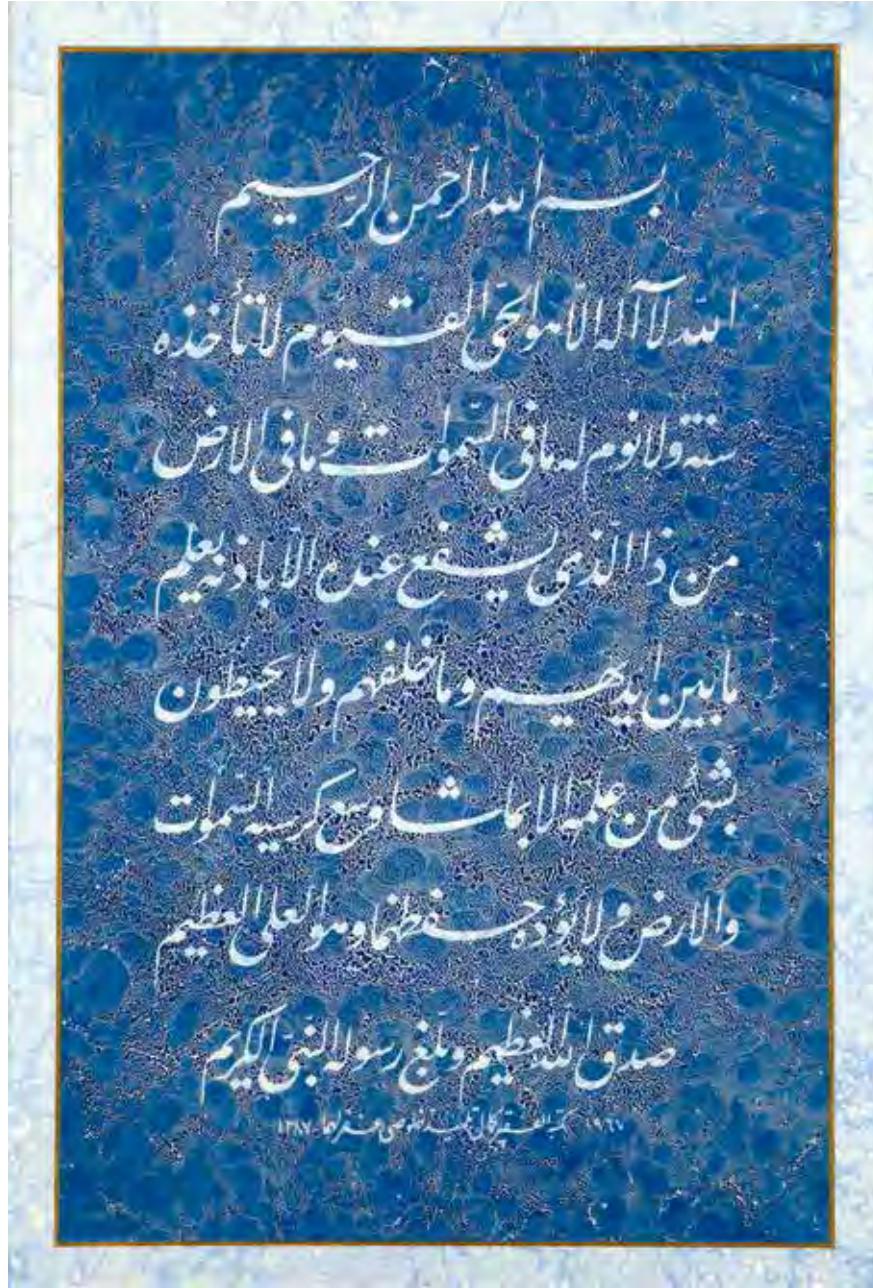 بسم الله الرحمن الرّحيم
اللّه لا آله الاّ هو الحىّ القيوم لا تأخذه
سنة ولا نوم له ما فى السّموات وما فى الارض
من ذا الّذى يشفع عنده الاّ باذنه يعلم
ما بين ايديهم وما خلفهم ولا يحيطون
بشىء من علمه الا بما شاء وسع كرسيه السّموات
والارض ولا يؤده حفظهما وهو العلى العظيم
صدق اللّه العظيم وبلّغ رسوله النّبىّ الكريم
١٩٦٧ كتبه الفقير تلميذ خلوصى غفر لهما ١٣٨٧